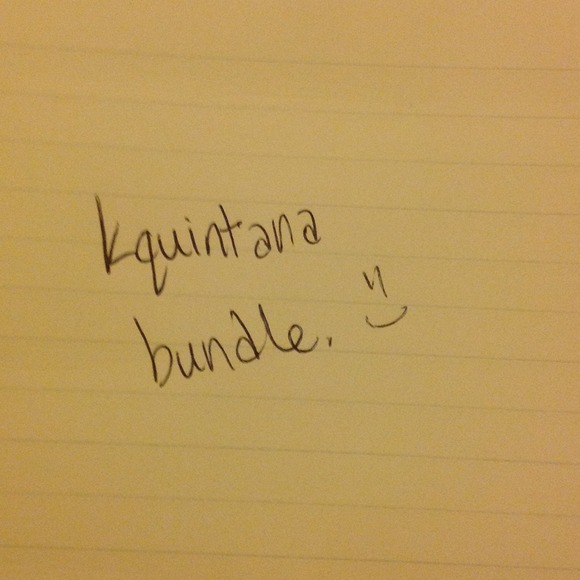 kquintana
bundle. ")